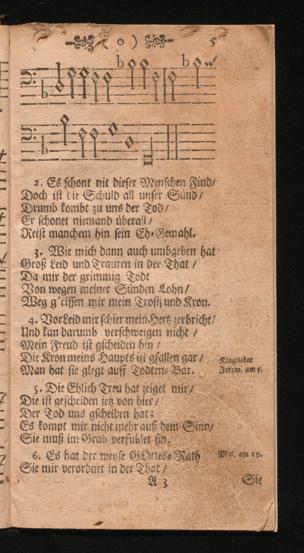 ( o ) 5
2. Es schont nit dieser Menschen Find/
Doch ist die Schuld all unser Sünd/
Drumb kombt zu uns der Tod/
Er schonet niemand überall/
Reist manchem hin sein Eh-Gemahl.
3. Wie mich dann auch umbgeben hat
Groß Leid und Trauren in der That/
Da mir der grimmig Todt
Von wegen meiner Sünden Lohn/
Weg g'rissen mir mein Trost und Kron.
4. Vor Leid mir schier mein Hertz zerbricht/
Und kan darumb verschweigen nicht/
Mein Freud ist gscheiden hin/
Die Kron meins Haupts ist gfallen gar/ Klaglieder
Man hat sie glegt auff Todten-Bar. Jerem. am 5.
5. Die Ehlich Treu hat zeiget mir/
Die ist gescheiden jetz von hier/
Der Tod uns gscheiden hat:
Es kompt mir nicht mehr auß dem Sinn/
Sie muß im Grab verfaulet sin.
6. Es hat der weyse GOttes-Rath Mat. am 19.
Sie mir verordnet in der That/
A 3 Sie